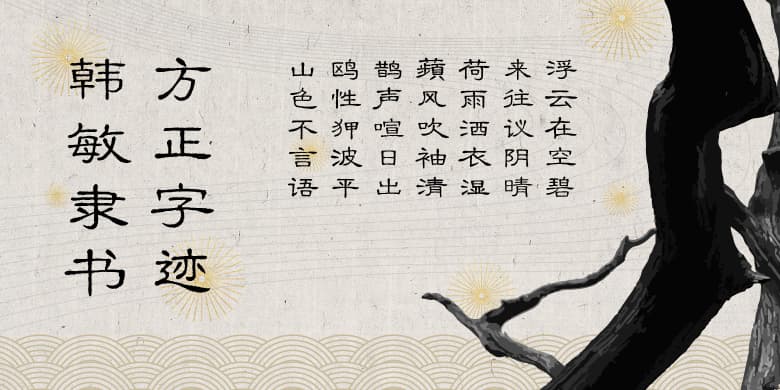 方正字迹
韩敏隶书
浮云在空碧
来往议阴晴
荷雨洒衣湿
蘋风吹袖清
鹊声喧日出
鸥性狎波平
山色不言语